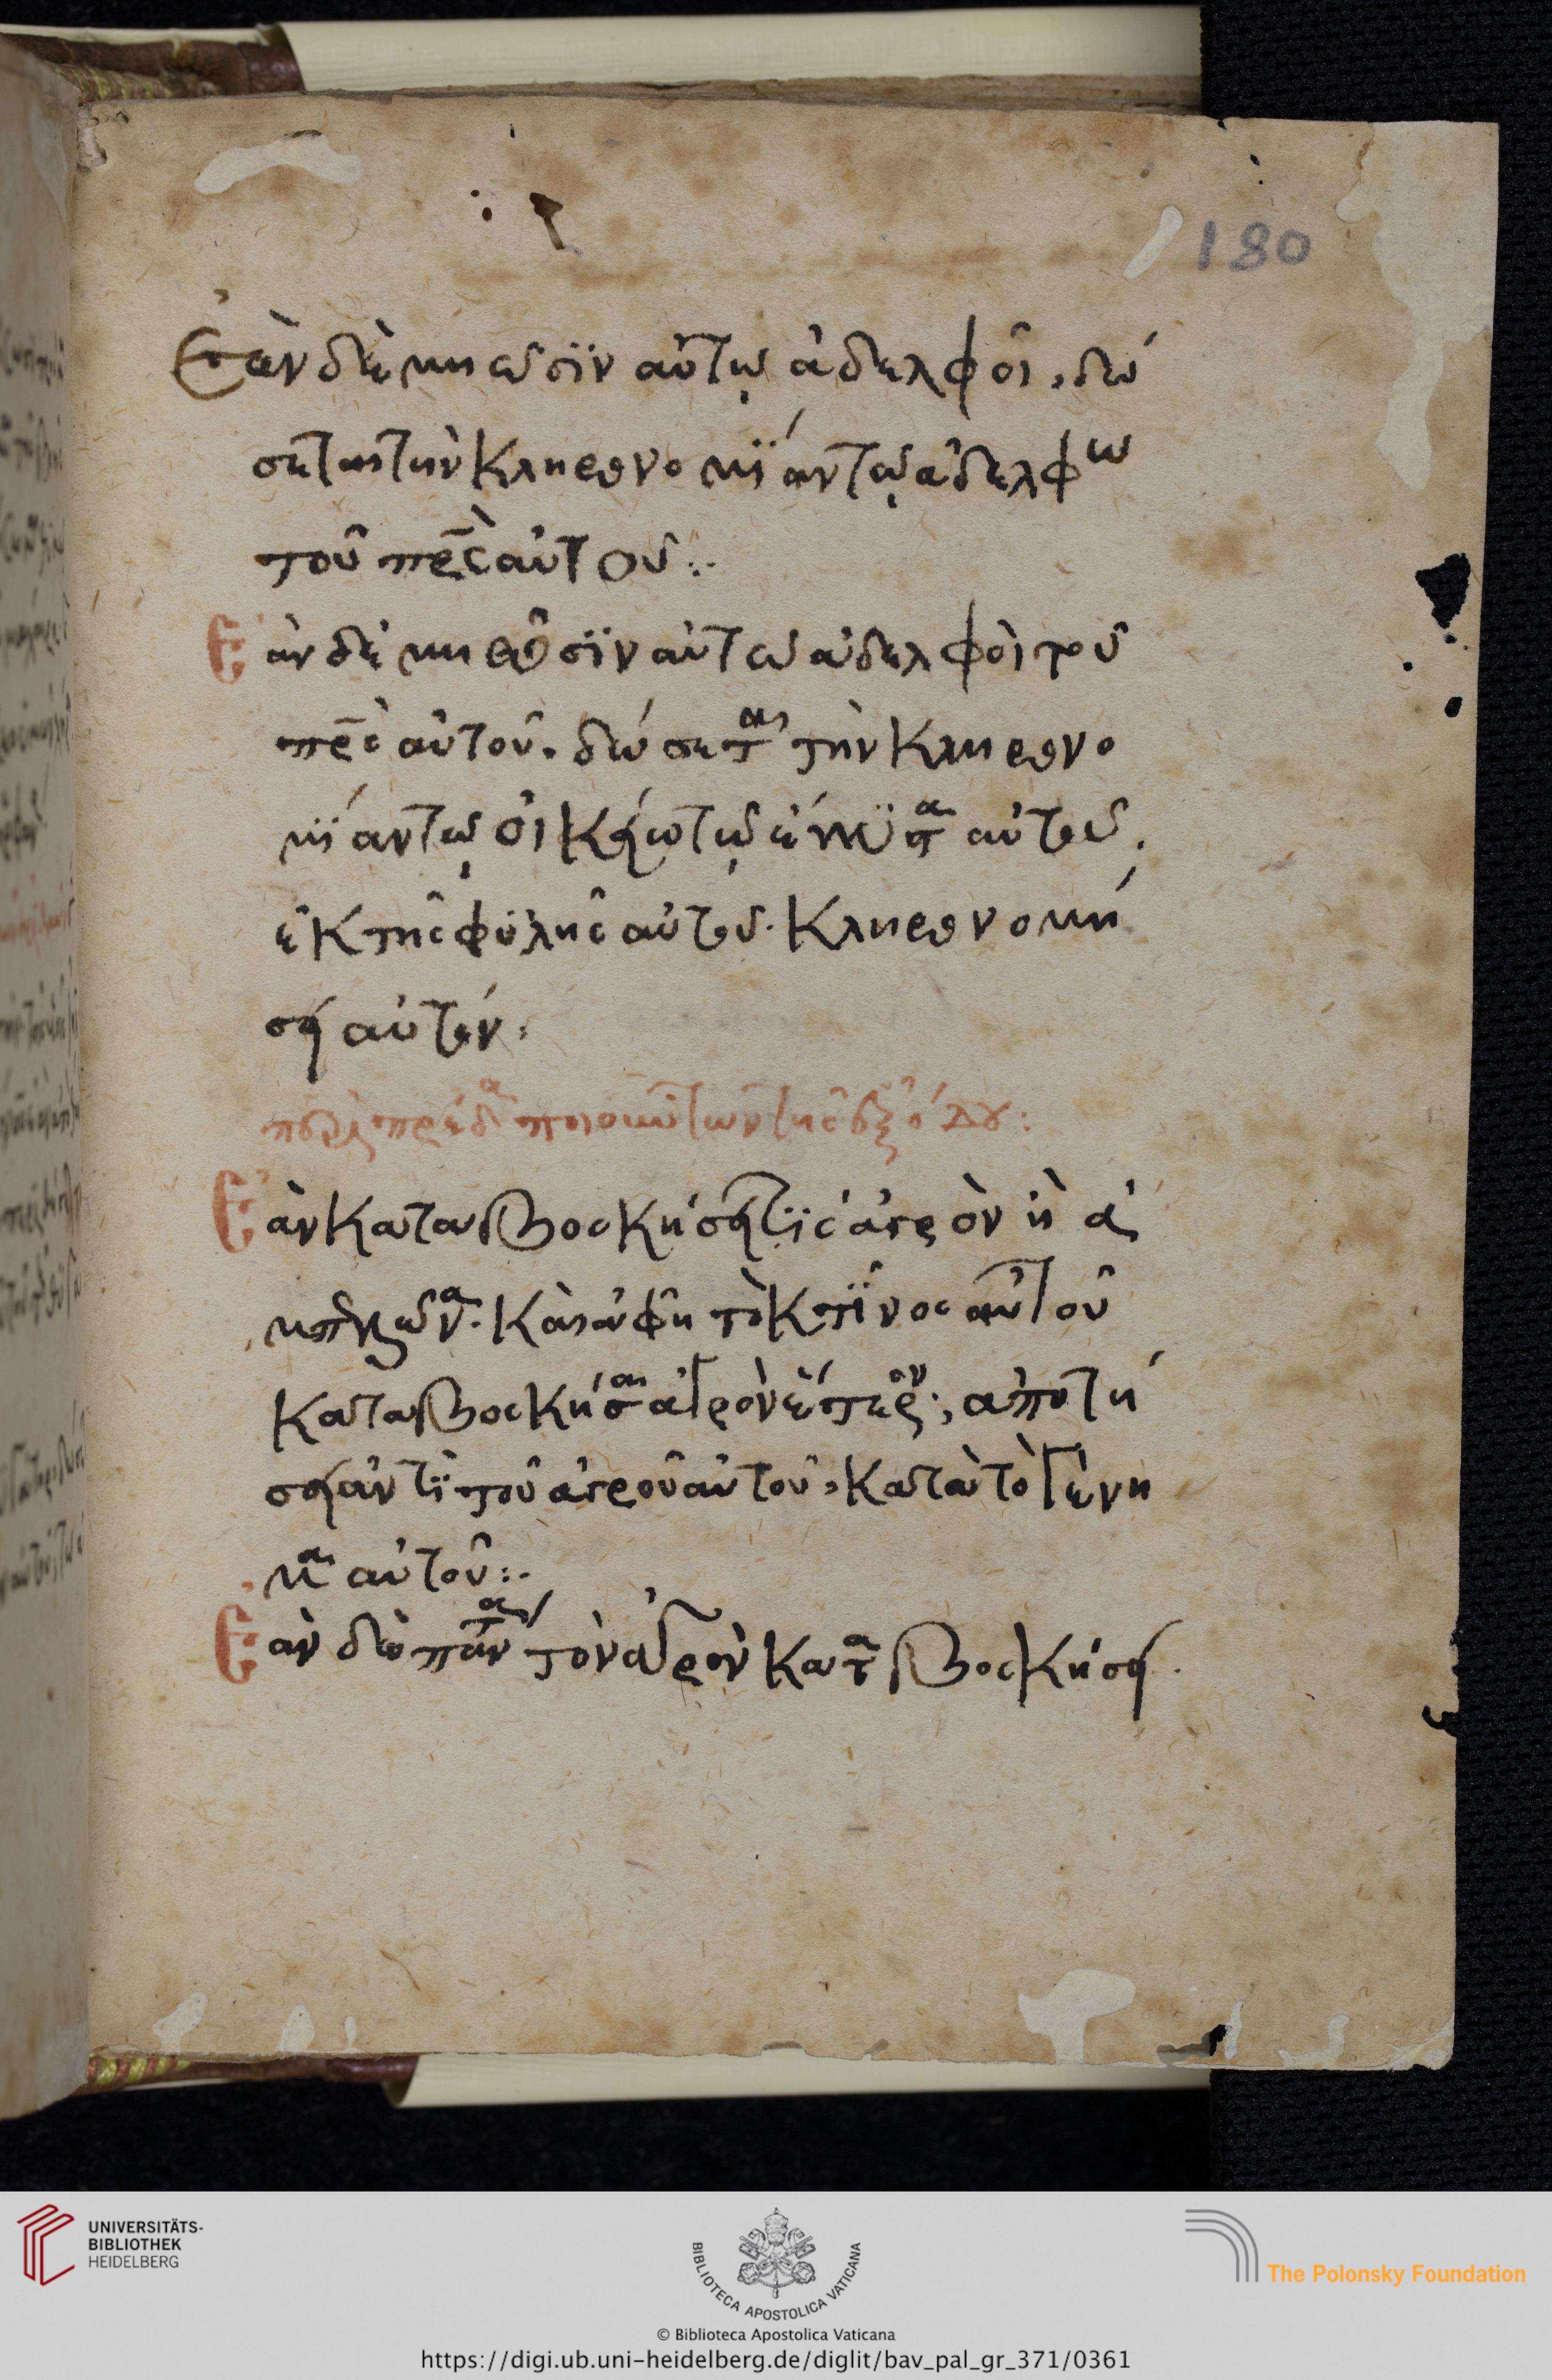 180
Ἐὰν δὲ μὴ ὦσϊν αὐτῷ ἀδελφοῖ, δώ
σεται τὴν κληρονομΐαν τῷ ἀδελφω
τοῦ πρ̅ς αὐτοῦ:.
Ἐὰν δὲ μὴ ὦσϊν αὐτῶ ἀδελφοὶ τοῦ
πρ̅ς αὐτοῦ. δώσεται τὴν κληρονο
μΐαν τῷ οἰκείω τῷ ἔγγϋστα αὐτοῦ.
ἐκ τῆς φϋλῆς αὐτοῦ. κληρονομή
σει αὐτόν:
ἐξόδου:
Ἐὰν καταβοσκήσει τϊς ἀγρὸν ἢ ἀ
μπελῶνα. καὶ ἀφῆ τὸ κτΐνος αὐτοῦ
καταβοσκήσαι ἀγρὸν ἕτερον:, ἀποτή
σει ἀντῒ τοῦ ἀγροῦ αὐτοῦ, κατὰ τὸ γένη
μα αὐτοῦ:.
Ἐὰν δὲ πάντα τὸν ἀγρὸν καταβοσκήσει.
UNIVERSITÄTS-
BIBLIOTHEK
HEIDELBERG
BIBLIOTECA APOSTOLICA VATICANA
The Polonsky Foundation
© Biblioteca Apostolica Vaticana
https://digi.ub.uni-heidelberg.de/diglit/bav_pal_gr_371/0361